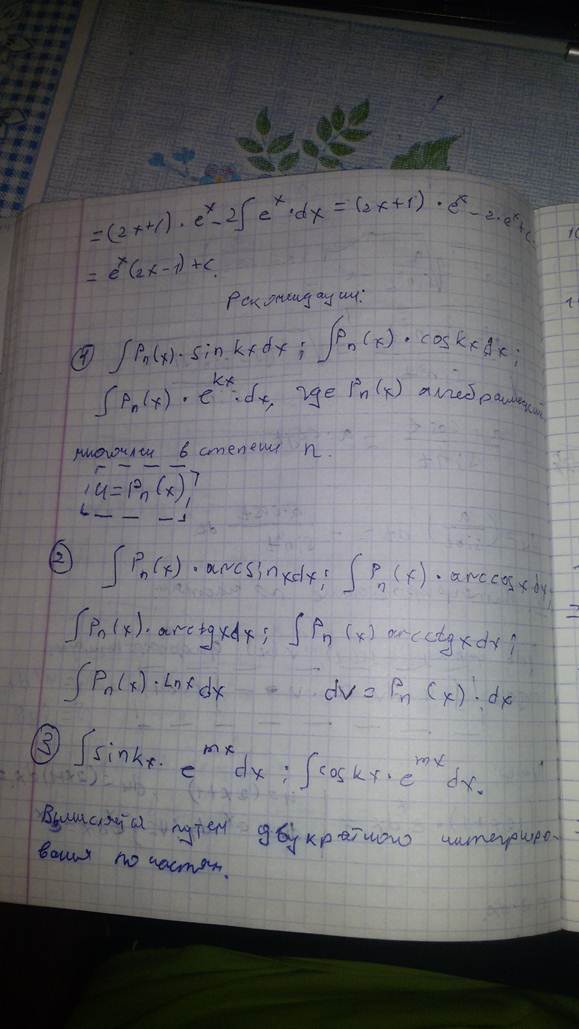 = (2x+1) · e^x - 2∫ e^x · dx = (2x+1) · e^x - 2 · e^x + c =
= e^x (2x-1) + c.
Рекомендации:
① ∫ Pn(x) · sin kx dx ; ∫ Pn(x) · cos kx dx ;
∫ Pn(x) · e^kx · dx, где Pn(x) алгебраический
многочлен в степени n.
u = Pn(x)
② ∫ Pn(x) · arcsin x dx ; ∫ Pn(x) · arccos x dx ;
∫ Pn(x) · arctg x dx ; ∫ Pn(x) arcctg x dx ;
∫ Pn(x) · Ln x dx dv = Pn(x) · dx
③ ∫ sin kx · e^mx dx ; ∫ cos kx · e^mx dx.
путем двукратного интегриро-
вания по частям.